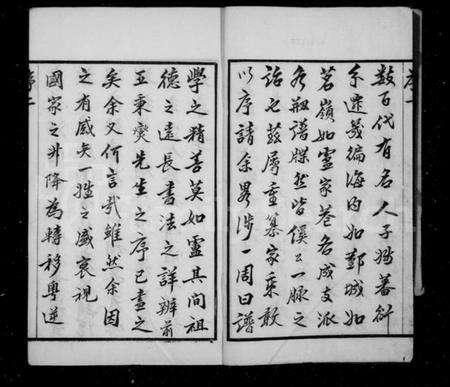 數百代有名人子姓蕃衍
系遠幾徧海內如鄞城如
茗嶺如靈家巷各成支派
各譜牒然皆公一脈之
詒也茲屆重纂家乘敦
以序請余畧涉一周曰譜
學之精善莫如靈其间祖
德之遠長書法之詳辨前
五秉燮先生之序已盡之
矣余又何言哉雖然余因
之有感矣一姓之盛衰視
國家之升降為轉移粵逆
序二